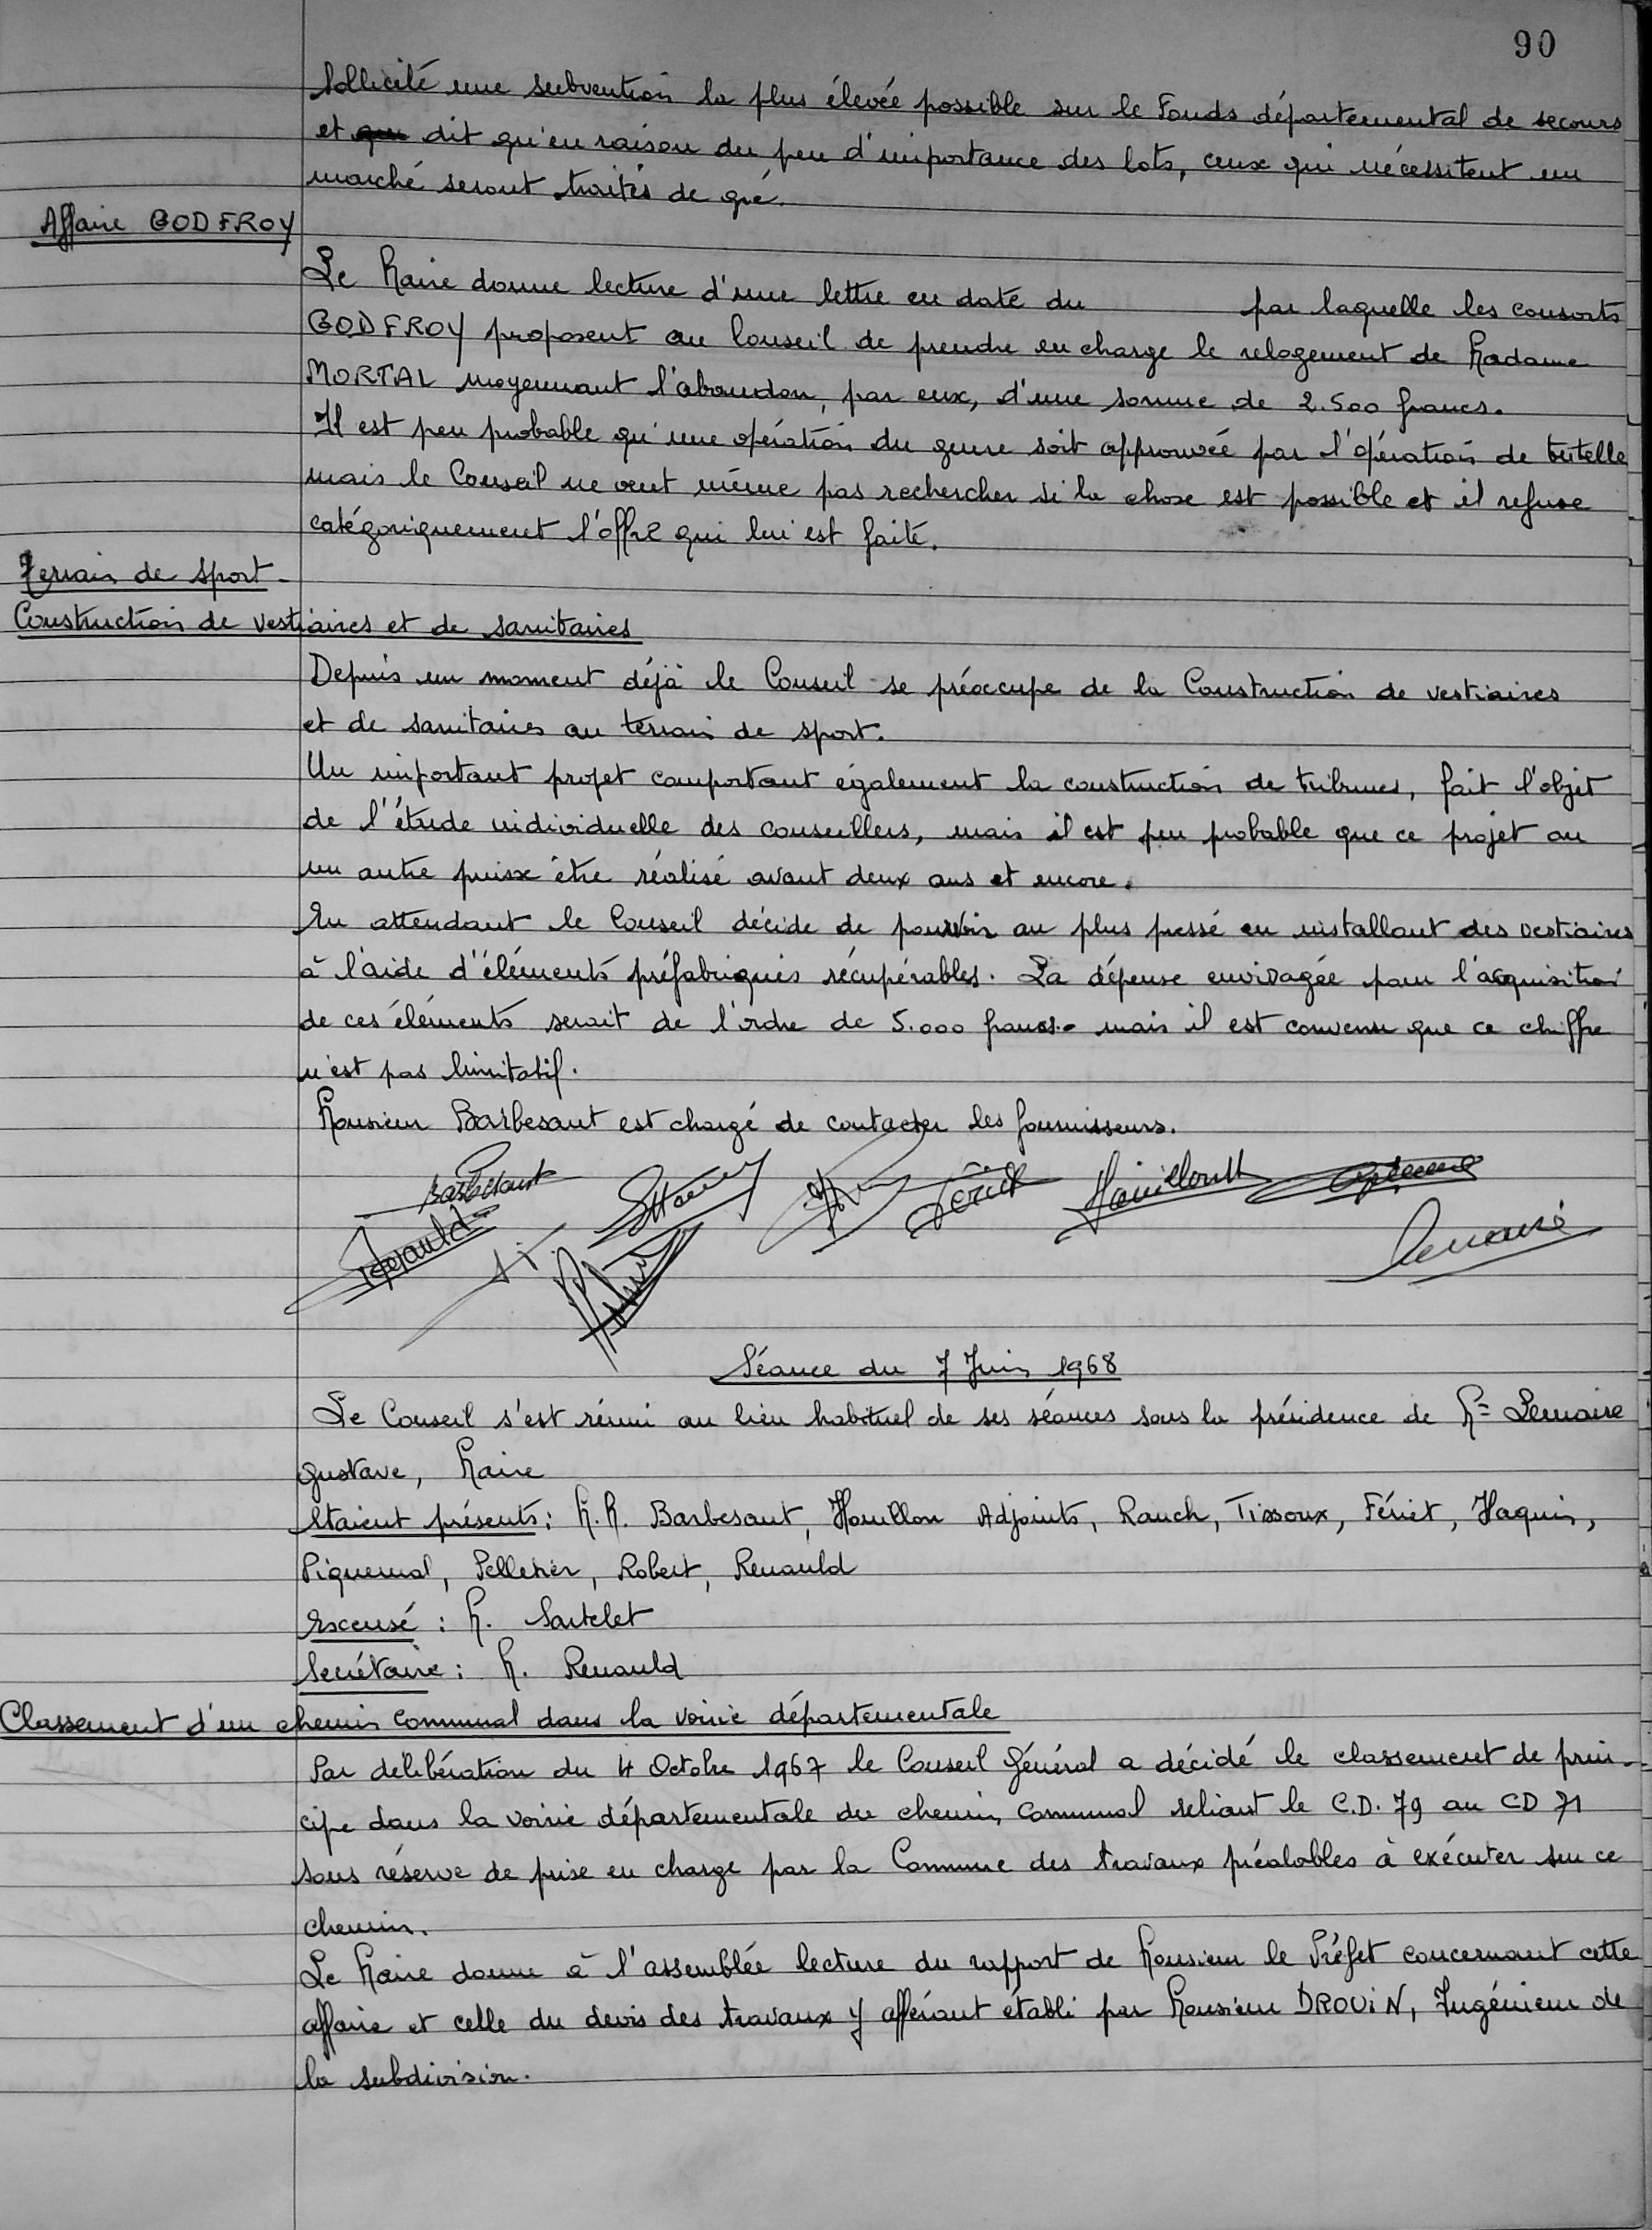 90
Sollicité une subvention la plus élevée possible sur le Fonds départemental de secours
et dit qu'en raison du peu d'importance des lots, ceux qui nécessitent un
marché seront traités de gré.
Affaire GODFROY
Le Maire donne lecture d'une lettre en date du par laquelle les consorts
GODFROY proposent au Conseil de prendre en charge le relogement de Madame
MORTAL moyennant l'abandon, par eux, d'une somme de 2.500 francs.
Il est peu probable qu'une opération du genre soit approuvée par l'opération de tutelle
mais le Conseil ne veut même pas rechercher si la chose est possible et il refuse
catégoriquement l'offre qui lui est faite.
Terrain de sport -
Construction de vestiaires et de sanitaires
Depuis un moment déjà le Conseil se préoccupe de la Construction de vestiaires
et de sanitaires au terrain de sport.
Un important projet comportant également la construction de tribunes, fait l'objet
de l'étude individuelle des conseillers, mais il est peu probable que ce projet ou
un autre puisse être réalisé avant deux ans et encore.
En attendant le Conseil décide de pourvoir au plus pressé en installant des vestiaires
à l'aide d'éléments préfabriqués récupérables. La dépense envisagée pour l'acquisition
de ces éléments serait de l'ordre de 5.000 francs. mais il est convenu que ce chiffre
n'est pas limitatif.
Monsieur Barbesant est chargé de contacter les fournisseurs.
Barbesant
Fériet
Renauld
Lemaire
Séance du 7 Juin 1968
Le Conseil s'est réuni au lieu habituel de ses séances sous la présidence de Mr Lemaire
Gustave, Maire
Etaient présents : M.M. Barbesant, Houillon Adjoints, Rauch, Tissoux, Fériet, Haquin,
Piquemal, Pelletier, Robert, Renauld
Excusé : M. Sartelet
Secrétaire : M. Renauld
Classement d'un chemin communal dans la voirie départementale
Par délibération du 4 Octobre 1967 le Conseil Général a décidé le classement de prin-
cipe dans la voirie départementale du chemin communal reliant le C.D. 79 au CD 71
sous réserve de prise en charge par la Commune des travaux préalables à exécuter sur ce
chemin.
Le Maire donne à l'assemblée lecture du rapport de Monsieur le Préfet concernant cette
affaire et celle du devis des travaux y afférant établi par Monsieur DROUIN, Ingénieur de
la subdivision.